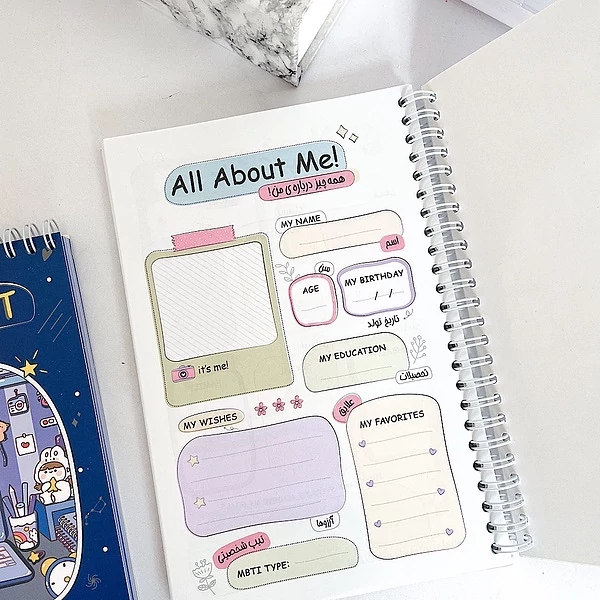 All About Me!
همه چیز درباره ی من!
MY NAME
اسم
it's me!
سن
AGE
MY BIRTHDAY
/ /
تاریخ تولد
MY EDUCATION
تحصیلات
MY WISHES
آرزوها
علایق
MY FAVORITES
تیپ شخصیتی
MBTI TYPE:
T